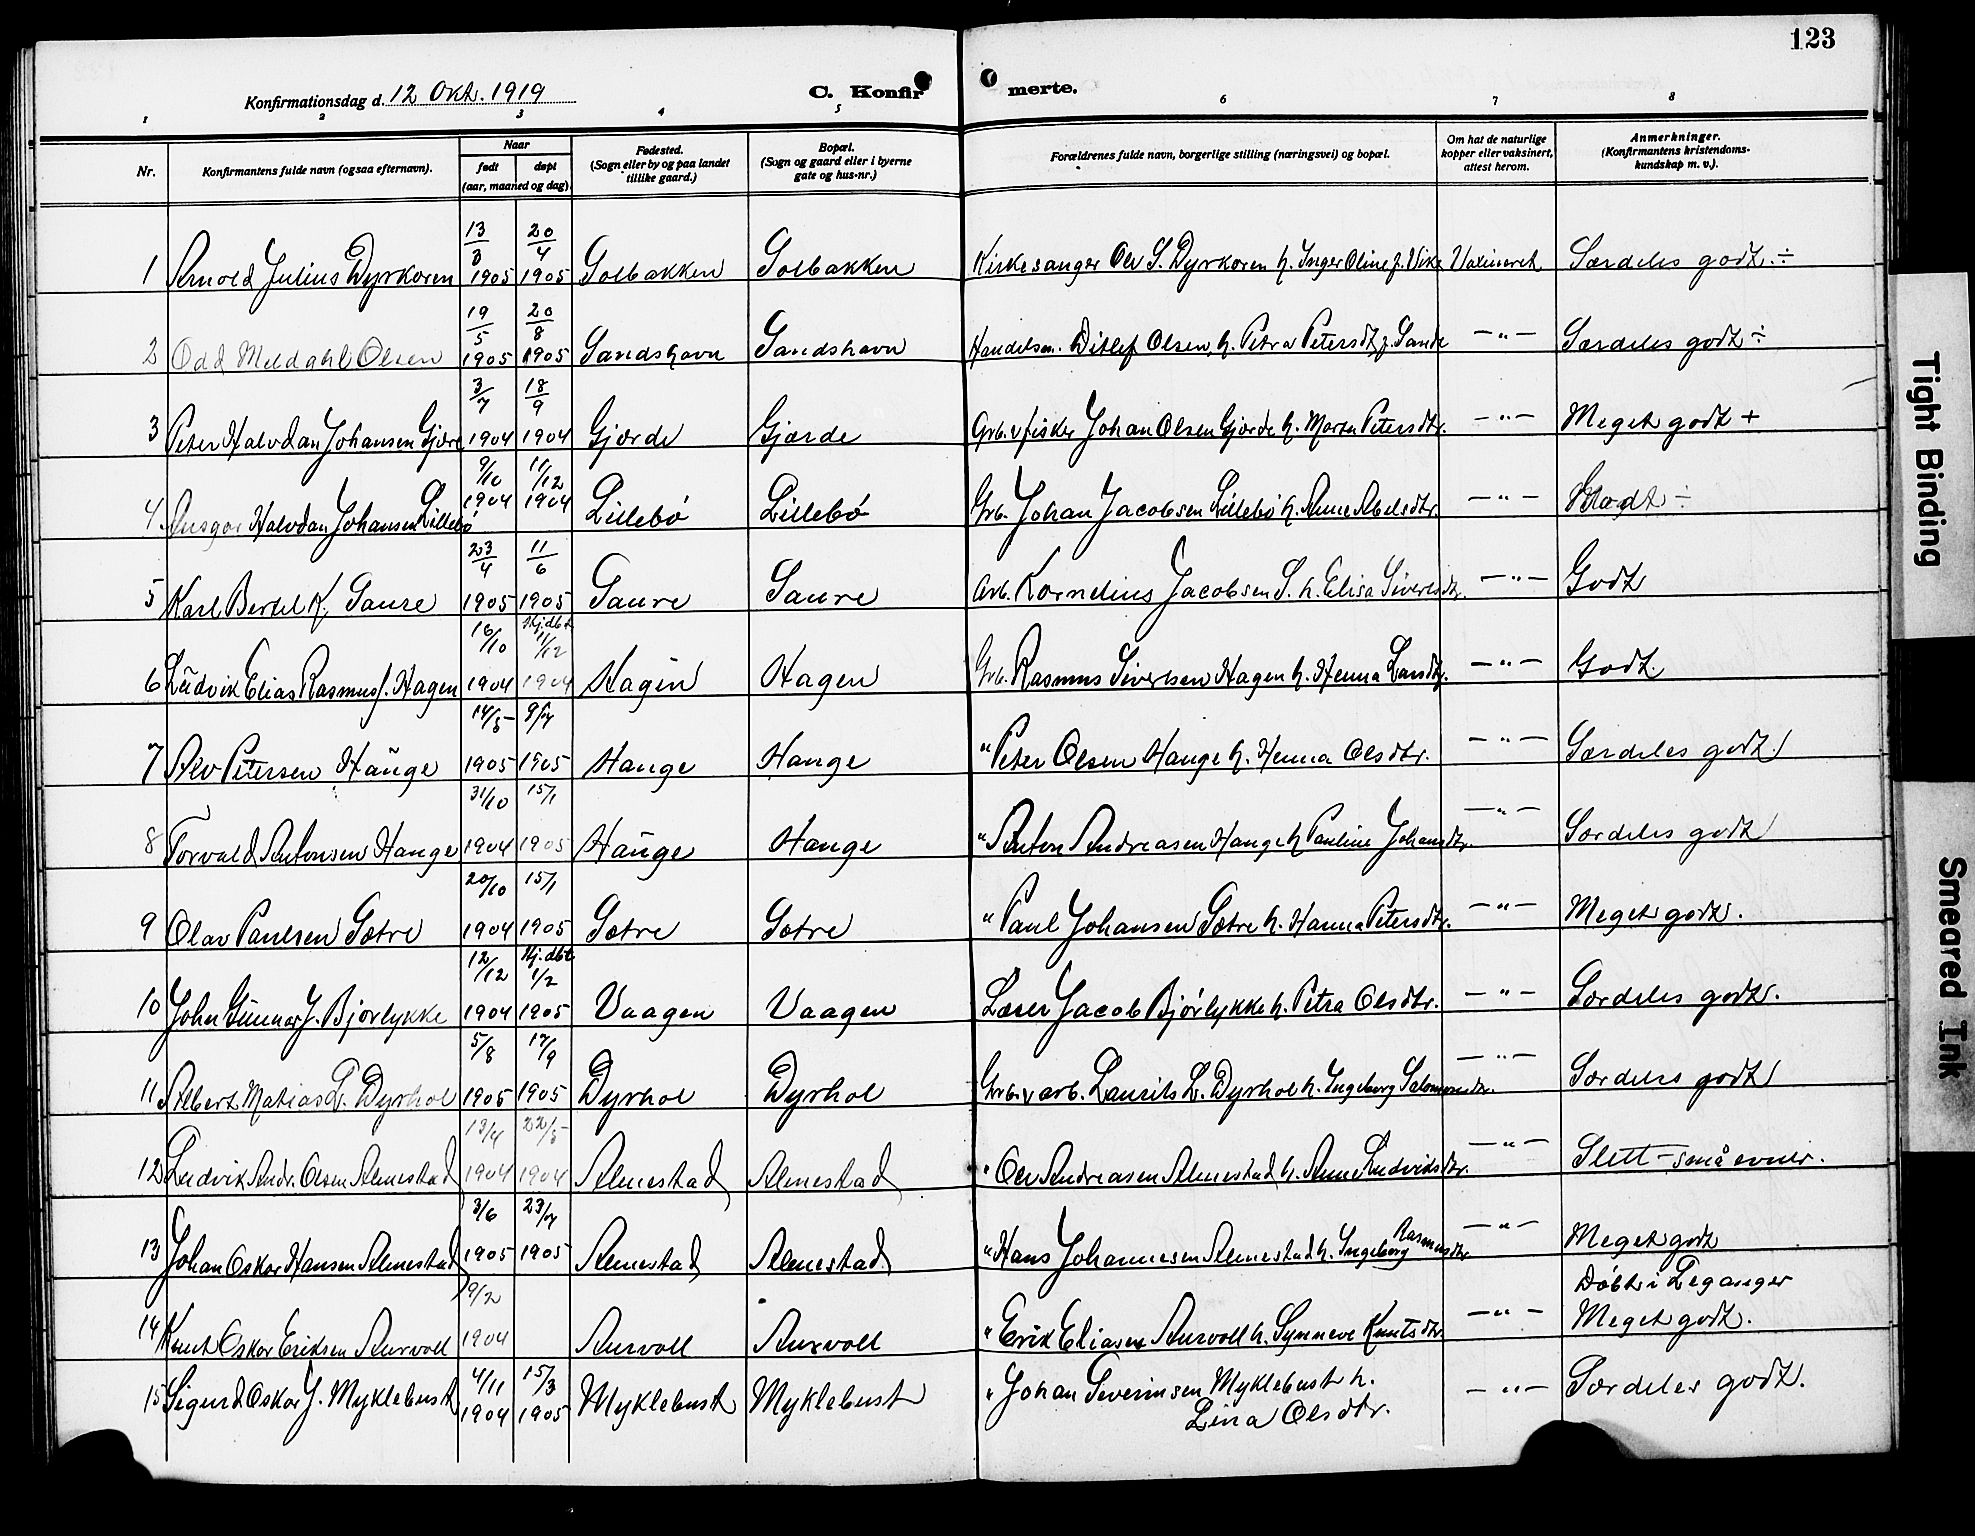 123
Konfirmationsdag d. 12 Okt. 1919
C. Konfirmerte.
1 2 3 4 5 6 7 8
Nr.
Konfirmantens fulde navn (ogsaa efternavn).
Naar
født
døpt
(aar, maaned og dag).
Fødested.
(Sogn eller by og paa landet
tillike gaard.)
Bopæl.
(Sogn og gaard eller i byerne
gate og hus-nr.)
Forældrenes fulde navn, borgerlige stilling (næringsvei) og bopæl.
Om hat de naturlige
kopper eller vaksinert,
attest herom.
Anmerkninger.
(Konfirmantens kristendoms-
kundskap m. v.).
1 Arnold Julius Dyrkoren 13/3 1905 20/4 1905 Solbakken Solbakken Kirkesanger Ole S. Dyrkoren h. Inger Oline f. Vik Vaxineret Særdeles godt. ÷
2 Odd Meldahl Olsen 19/5 1905 20/8 1905 Sandshavn Sandshavn Handelsm. Ditlef Olsen, h. Petra Petersdt. f. Sande — " — Særdeles godt ÷
3 Peter Halvdan Johansen Gjære 3/7 1904 18/9 1904 Gjærde Gjærde Grb. v fisker Johan Olsen Gjærde h. Marta Petersdtr. — " — Meget godt +
4 Ansgar Halvdan Johansen Lillebø 9/10 1904 11/12 1904 Lillebø Lillebø Grb. Johan Jacobsen Lillebø h. Anne Abelsdtr. — " — ÷
5 Karl Bertel K. Saure 23/4 1905 11/6 1905 Saure Saure Arb. Kornelius Jacobsen S. h. Elisa Sivertsdtr. — " — Godt
6 Ludvik Elias Rasmuss. Hagen 16/10 1904 Hj.dbt 11/12 1904 Hagen Hagen Grb. Rasmus Sivertsen Hagen h. Henna Larsdtr. — " — Godt.
7 Alv Petersen Hauge 14/5 1905 9/7 1905 Hauge Hauge " Peter Olsen Hauge h. Henna Olsdtr. — " — Særdeles godt.
8 Torvald Antonsen Hauge 31/10 1904 15/1 1905 Hauge Hauge " Anton Andreasen Hauge h Pauline Johansdtr. — " — Særdeles godt
9 Olav Paulsen Sætre 20/10 1904 15/1 1905 Sætre Sætre " Paul Johansen Sætre h. Hanna Petersdtr. — " — Meget godt.
10 John Gunnar J. Bjørlykke 12/12 1904 Hj.dbt 1/2 1905 Vaagen Vaagen Læser Jacob Bjørlykke h. Petra Olsdtr. — " — Særdeles godt.
11 Albert Matias L. Dyrhol 5/8 1905 17/9 1905 Dyrhol Dyrhol Grb. v arb. Laurits L. Dyrhol h. Ingeborg Salomonsdtr. — " — Særdeles godt
12 Ludvik Andr. Olsen Almestad 13/4 1904 22/5 1904 Almestad Almestad " Ole Andreasen Almestad h. Anne Ludviksdtr. — " — Slett - små evner.
13 Johan Oskar Hansen Almestad 3/6 1905 23/7 1905 Almestad Almestad " Hans Johannesen Almestad h. Ingeborg Rasmusdtr. — " — Meget godt
14 Knut Oskar Eriksen Aurvoll 19/2 1904 Aurvoll Aurvoll " Erik Eliasen Aurvoll h. Synneve Knutsdtr — " — Døbt i Leganger
Meget godt.
15 Sigurd Oskar J. Myklebust 4/11 1904 15/3 1905 Myklebust Myklebust " Johan Severinsen Myklebust h.
Lina Olsdtr. — " — Særdeles godt.
Tight Binding
Smeared Ink